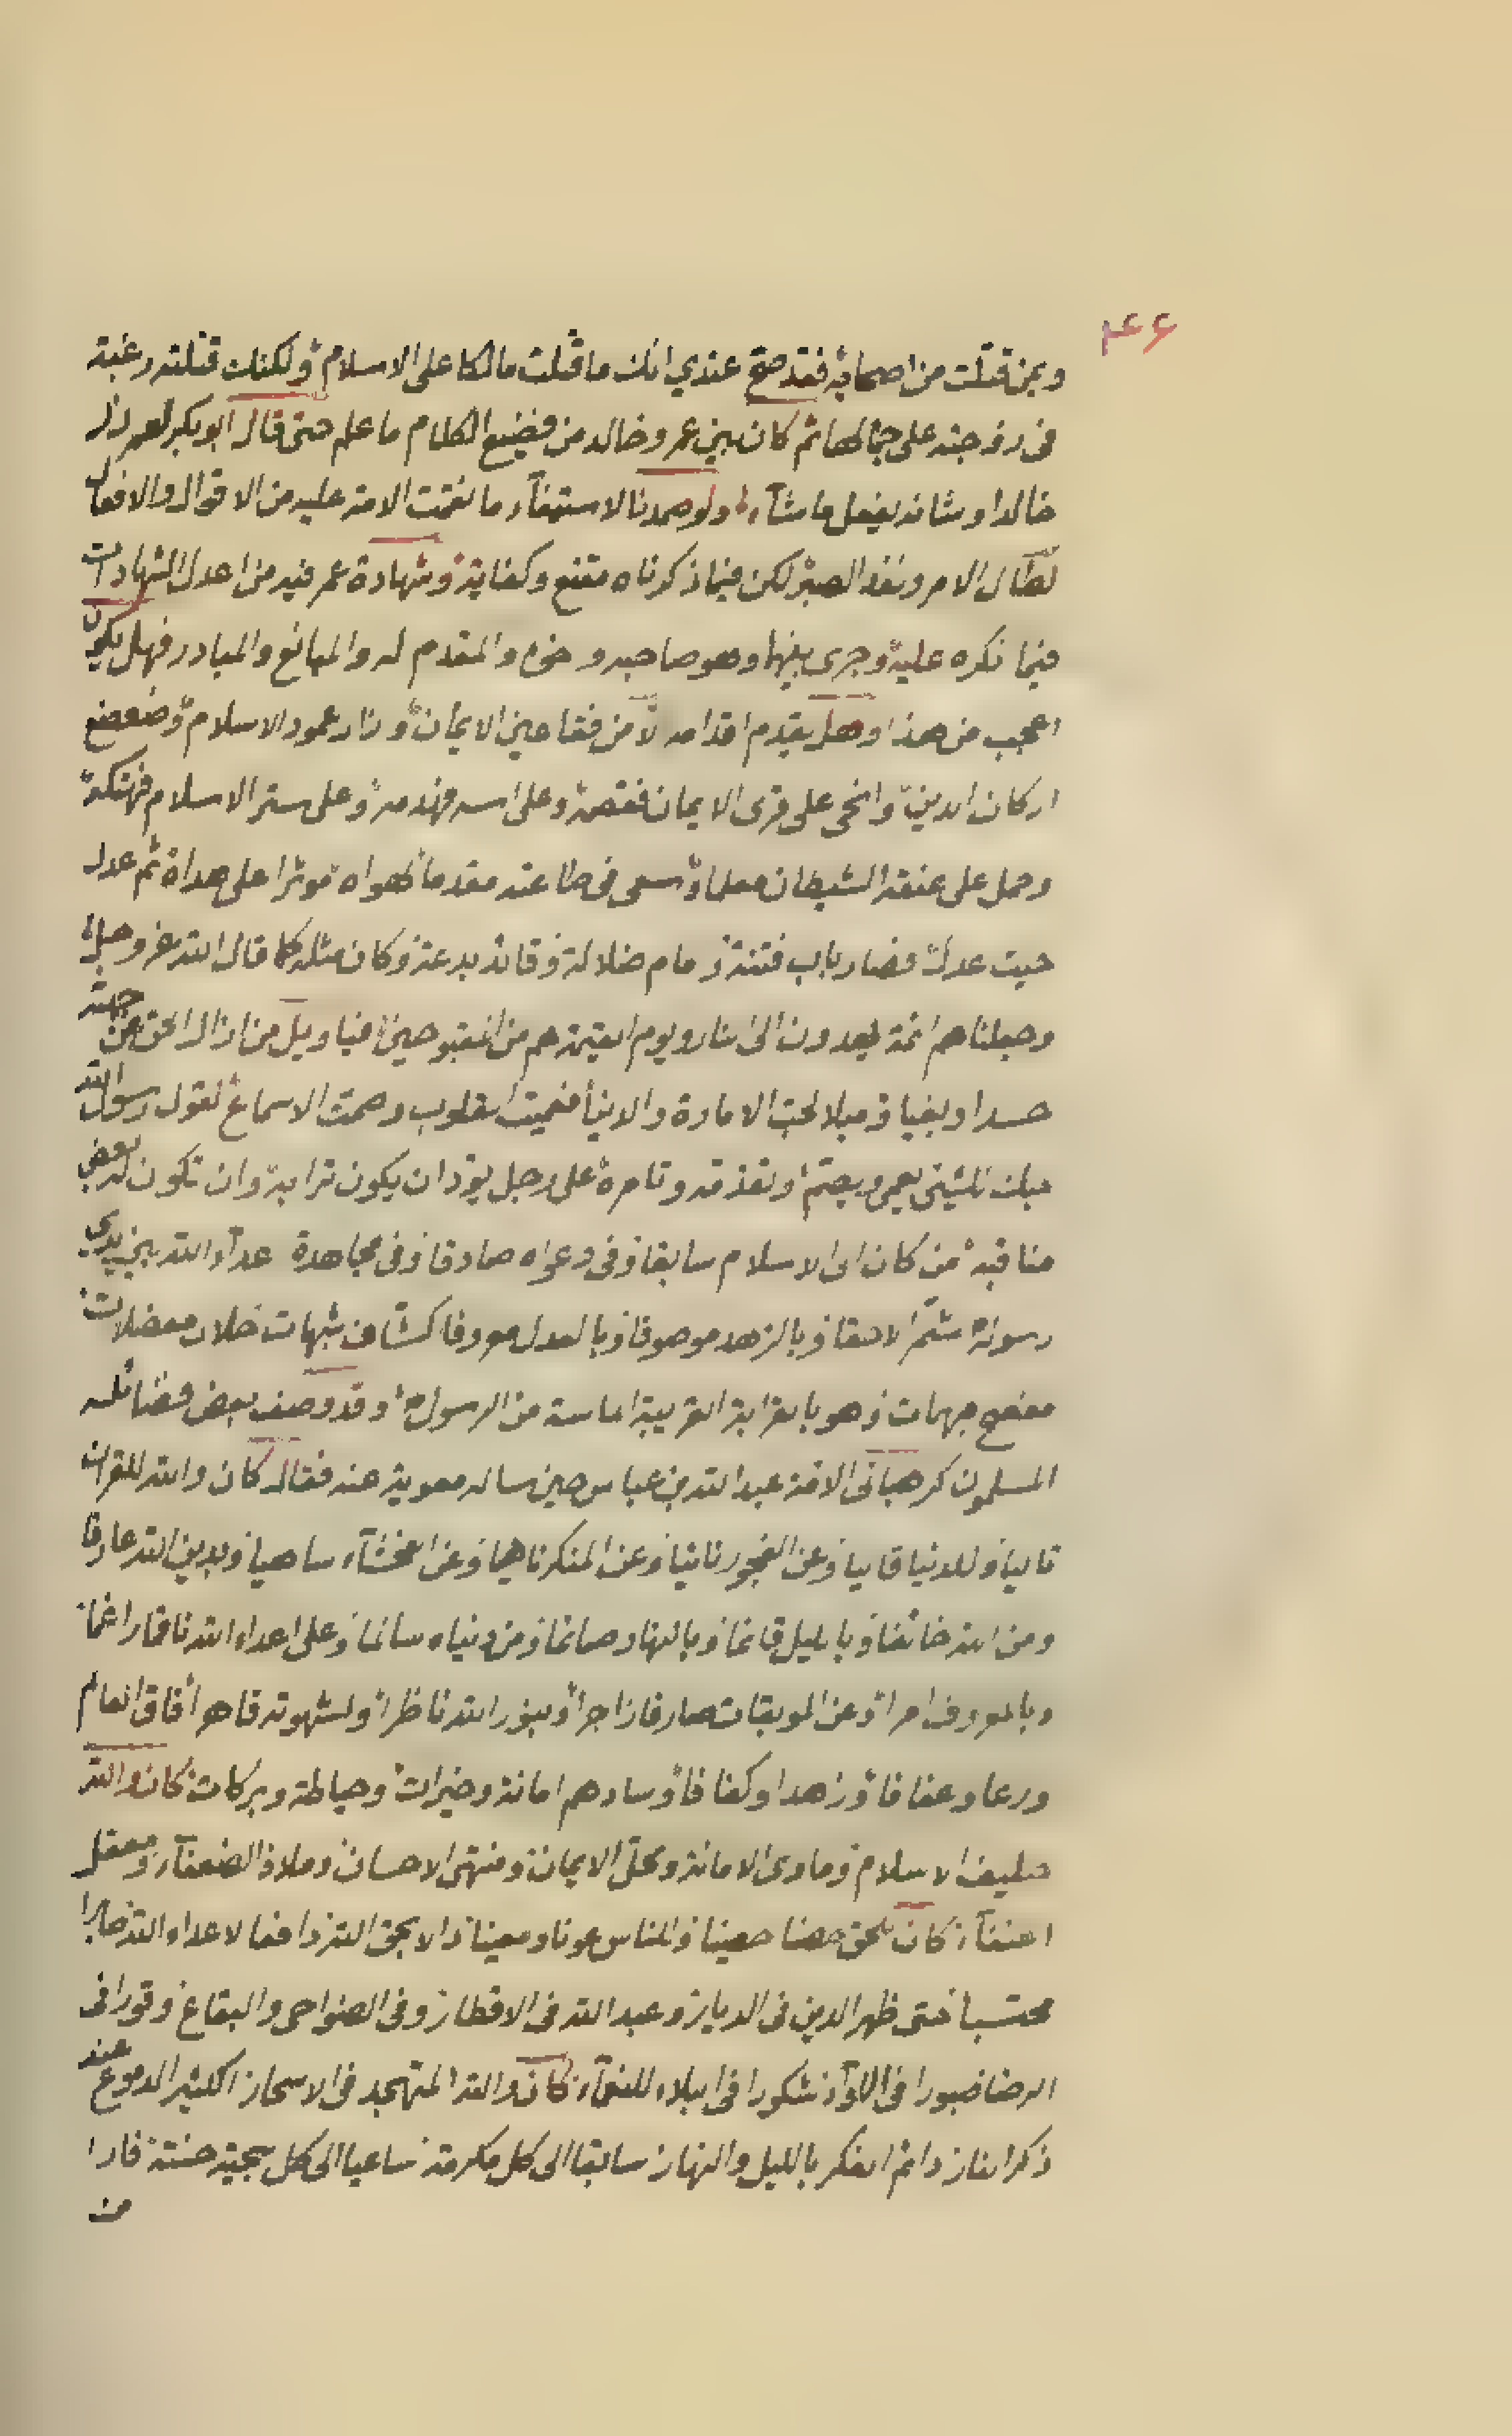 ٤٤٦
وبمن قتلت من اصحابه فقد صح عندي انك ما قتلت مالكا على الاسلام ولكنك قتلته رغبة
فى زوجته على جمالها ثم كان بين عمر وخالد من فضيع الكلام ما علم حتى قال ابو بكر لعمر ذر
خالدا وشانه يفعل ما شآء ولو صمدنا لاستيفآء ما نقمت الامة عليه من الاقوال والافعال
لطال الامر ونفد الصبر لكن فيما ذكرناه مقنع وكفاية وشهادة عمر فيه من اعدل الشهادات
فيما نكره عليه وجرى بينهما وهو صاحبه و والمقدم له والمبايع والمبادر فهل يكون
اعجب من هذا وهل يقدم اقدامه الا من فقا عين الايمان وزار عمود الاسلام وضعضع
اركان الدين وانحى على قرى الايمان فقصمه وعلى اسه فهدمه وعلى ستر الاسلام فهتكه
وحمل على عنقه الشيطان معلما وسعى فى طاعته مقدما لهواه موثرا على هداه ثم عدل
حيث عدل فصار باب فتنة وزمام ضلالة وقائد بدعة وكان مثله كما قال الله عز وجل
وجعلناهم ائمة يهدون الى النار ويوم القيمة هم من المقبوحين فيا ويل من ازال الحق عن جهته
حسدا وبغيا وميلا لحب الامارة والدنيا فعميت القلوب وصمت الاسماع لقول رسول الله
حبك للشيئ يعمى ويصم وتقدمه وتامره على رجل يود ان يكون ترابه وان تكون له بعض
مناقبه من كان الى الاسلام سابقا وفى دعواه صادقا وفى مجاهدة اعدآء الله بين يدي
رسوله مشمرا لاحقا وبالزهد موصوفا وبالعدل معروفا كشاف شبهات حلال معضلات
مفصح جهات وهو بالقرابة القريبة الماسة من الرسول وقد وصف بعض فضائله
المسلمون كرهبانى الامة عبد الله بن عباس حين ساله معوية عنه فقال كان والله للقران
تاليا وللدنيا قاليا وعن الفجور نائيا وعن المنكر ناهيا وعن الفحشآء ساهيا وبدين الله عارفا
ومن الله خائفا وبالليل قائما وبالنهار صائما ومن دنياه سالما وعلى اعداء الله ناقما راغما
وبالمعروف امرا وعن الموبقات صارفا زاجرا وبنور الله ناظرا ولشهوته قاهرا فاق العالم
ورعا وعفافا وزهدا وكفافا وسادهم امانة وخيرات وحياطة وبركات كان والله
حليف الاسلام وماوى الامانة ومحل الايمان ومنتهى الاحسان وملاذ الضعفآء ومعقل
الحنفآء كان للحق حصنا حصينا وللناس عونا ومعينا دالا بحق الله دافعا لاعداء الله صابرا
محتسبا حتى ظهر الدين فى الديار وعبد الله فى الاقطار وفى الضواحى والبقاع وقورا فى
الرضا صبورا فى اللاوآء شكورا فى البلاء للنعمآء كان والله المتهجد فى الاسحار الكثير الدموع عند
ذكر النار دائم الفكر بالليل والنهار سابقا الى كل مكرمة ساعيا الى كل سجية حسنة فارا
من